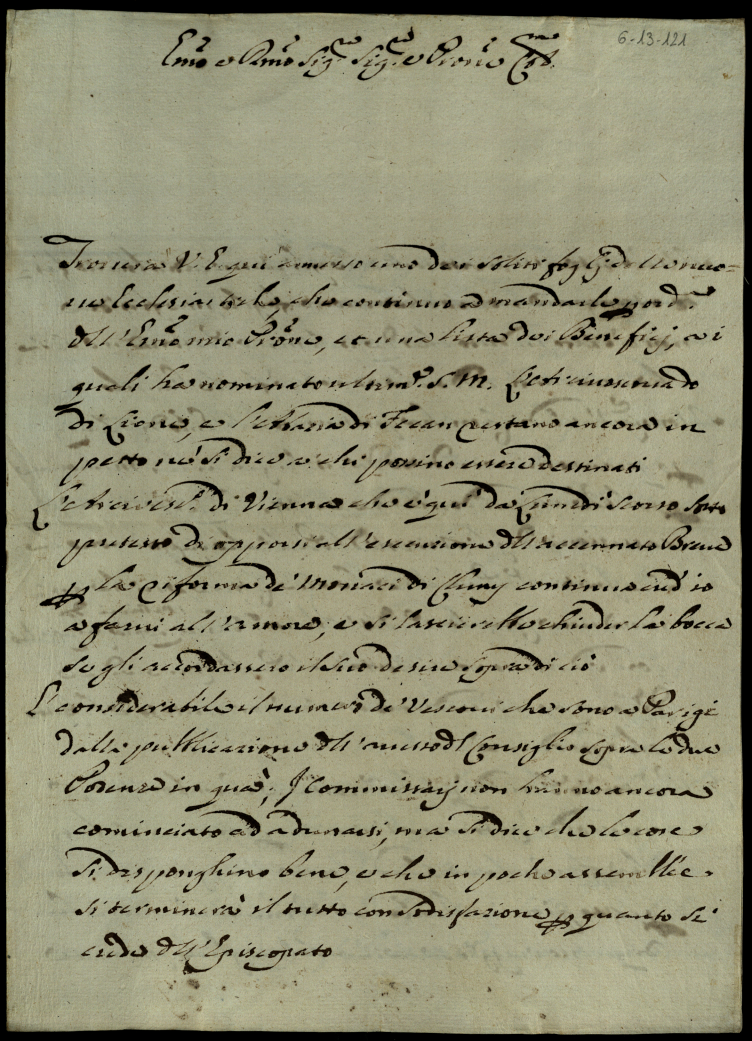 6-13-121
Emo e Rmo Sigre Sigre e Prone Colmo
Troverà V. E. qui annesso uno dei soliti foglj delle nuo=
ve Ecclesiastiche, che continuo a mandarle p ord.e
dell'Emo mio Prone, et una lista dei Beneficj, a i
quali ha nominato ultimte S. M. L'Arcivescovado
di Lione, e l'Abazia di Fecan restano ancora in
petto né si dice a chi possino essere destinati
L'Arcivescvo di Vienna che è quì da Lunedì scorso sotto
pretesto di opporsi all'esecuzione dell'accennato Breve
p la riforma de' Monaci di Cluny continua
a farvi all'amore, e si lascierebbe chiuder la bocca
se gli accordassero il suo desire sopra di ciò
È considerabile il numero de' Vescovi che sono a Parigi
dalla pubblicazione dell'arresto del Consiglio sopra le due
Potenze in quà; I Commissarj non hanno ancora
cominciato ad adunarsi, ma si dice che le cose
si disponghino bene, e che in poche assemblee
si terminerà il tutto con sodisfazione p quanto si
crede dell'Episcopato